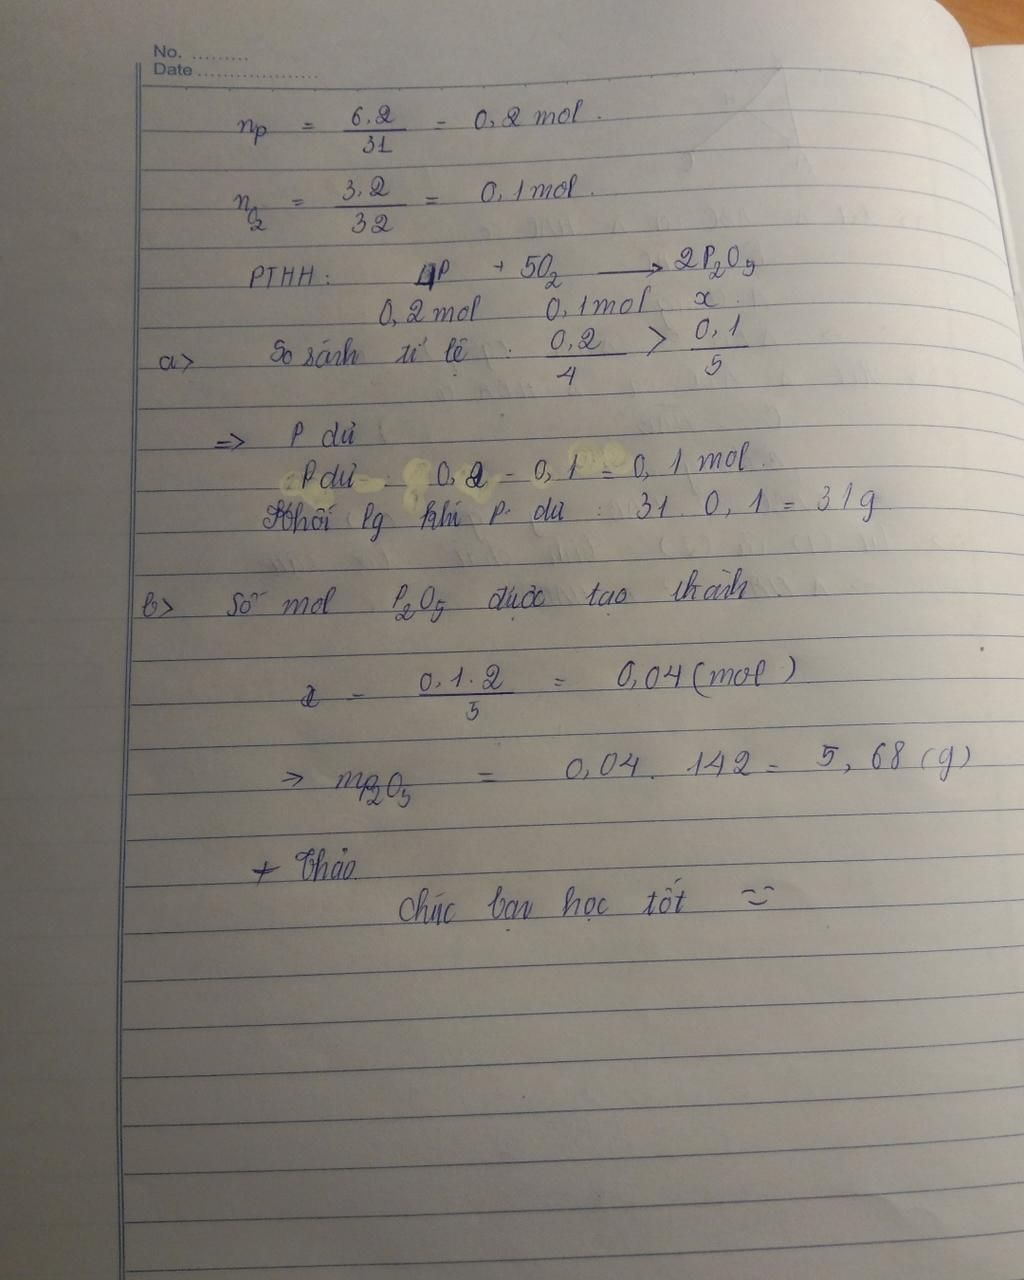 No. .........
Date ..................
nP = 6,2/31 = 0,2 mol.
nO2 = 3,2/32 = 0,1 mol.
PTHH: 4P + 5O2 → 2P2O5
0,2 mol 0,1 mol x.
a> So sánh tỉ lệ: 0,2/4 > 0,1/5
=> P dư
P dư = 0,2 - 0,1 = 0,1 mol.
Khối lg khí P dư: 31. 0,1 = 31g
b> Số mol P2O5 được tạo thành
x = 0,1.2/5 = 0,04 (mol)
=> mP2O5 = 0,04. 142 = 5,68 (g)
+ Thảo
Chúc bạn học tốt